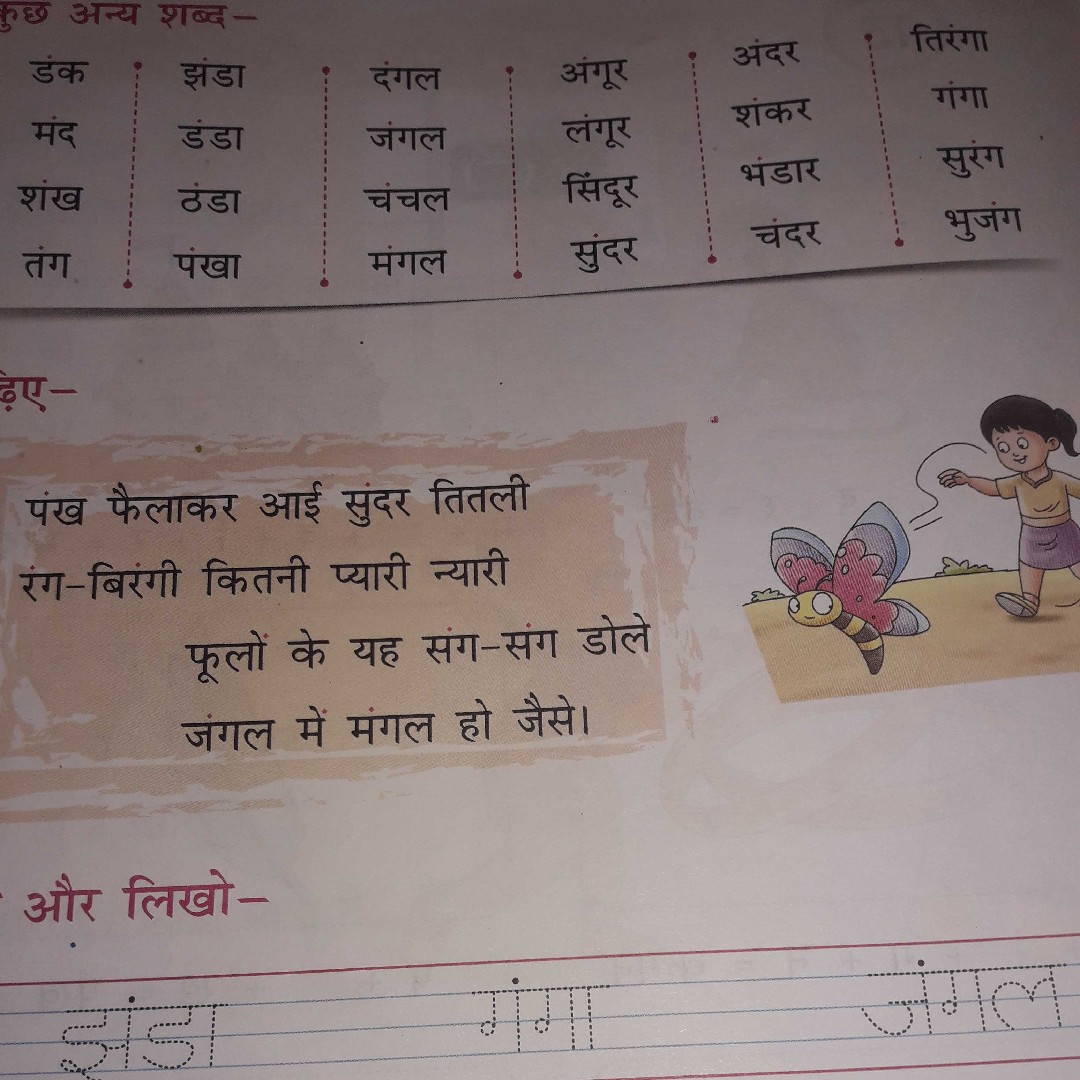 कुछ अन्य शब्द–
डंक झंडा दंगल अंगूर अंदर तिरंगा
मंद डंडा जंगल लंगूर शंकर गंगा
शंख ठंडा चंचल सिंदूर भंडार सुरंग
तंग पंखा मंगल सुंदर चंदर भुजंग
ढ़िए–
पंख फैलाकर आई सुंदर तितली
रंग-बिरंगी कितनी प्यारी न्यारी
फूलों के यह संग-संग डोले
जंगल में मंगल हो जैसे।
और लिखो–
झंडा गंगा जंगल